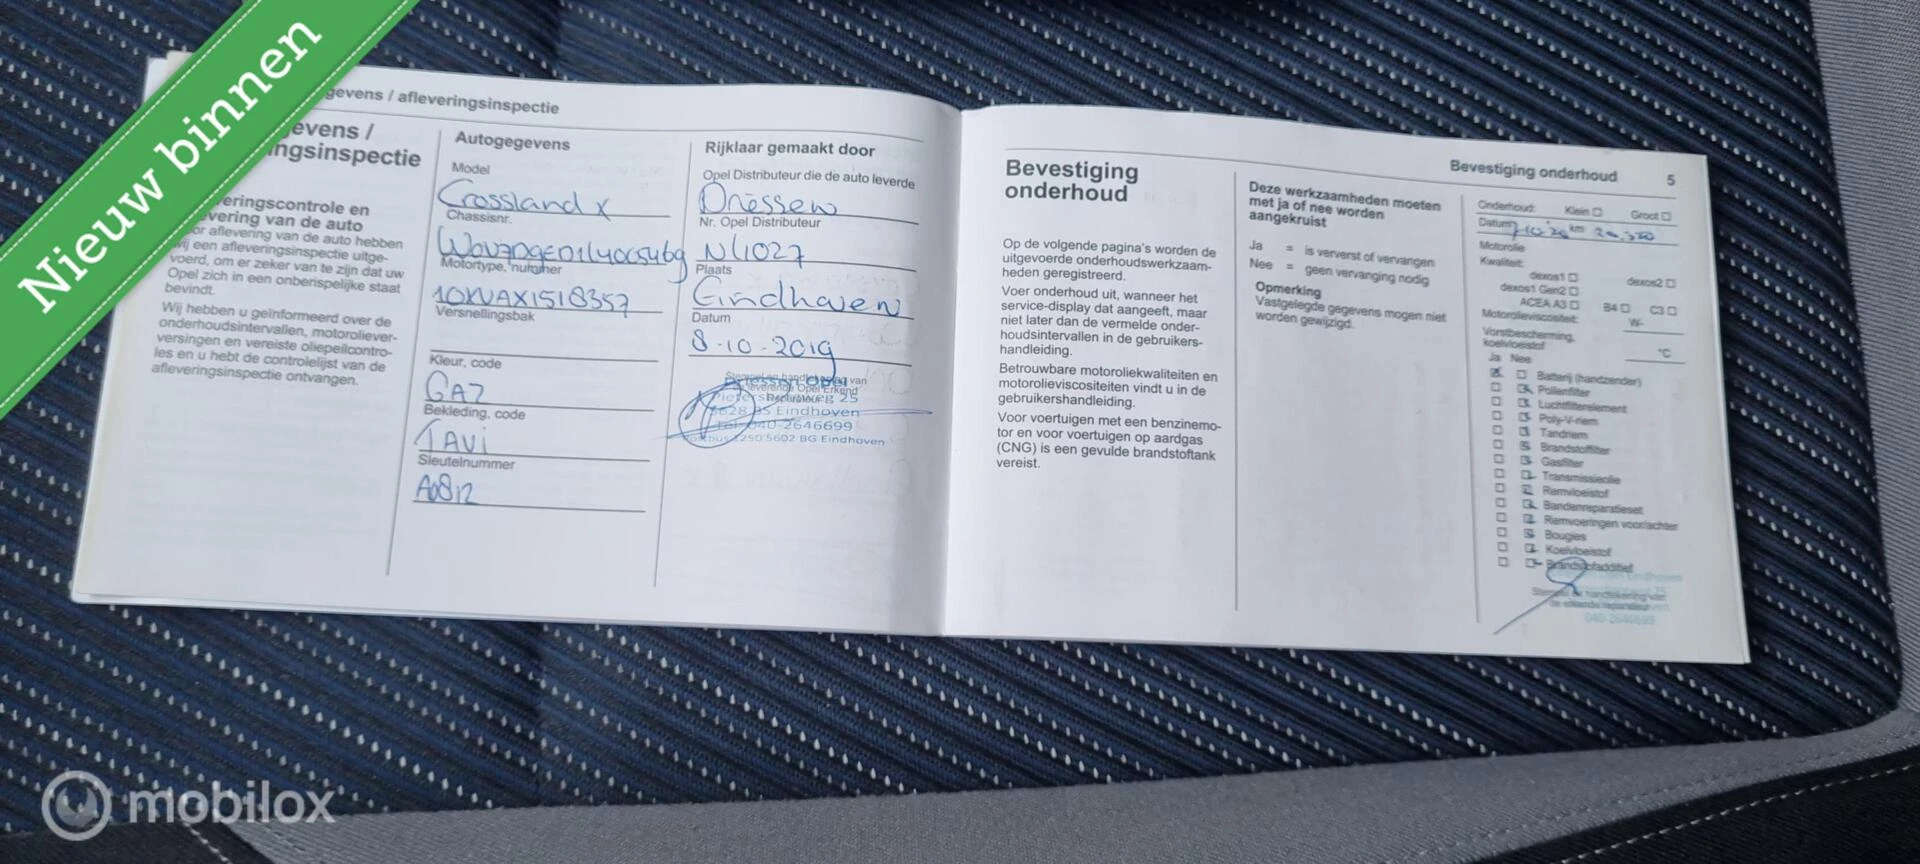 Nieuw binnen
gevens / afleveringsinspectie
evens /
ingsinspectie
eringscontrole en
vering van de auto
or aflevering van de auto hebben
wij een afleveringsinspectie uitge-
voerd, om er zeker van te zijn dat uw
Opel zich in een onberispelijke staat
bevindt.
Wij hebben u geïnformeerd over de
onderhoudsintervallen, motoroliever-
versingen en vereiste oliepeilcontro-
les en u hebt de controlelijst van de
afleveringsinspectie ontvangen.
Autogegevens
Model
Crossland X
Chassisnr.
Motortype, nummer
10XVAX1518357
Versnellingsbak
Kleur, code
GAZ
Bekleding, code
TAVI
Sleutelnummer
A0812
Rijklaar gemaakt door
Opel Distributeur die de auto leverde
Driessen
Nr. Opel Distributeur
NL1027
Plaats
Eindhoven
Datum
8-10-2019
Stempel en handtekening van
Driessen Opel
leverende Opel Erkend
Reparateur
25
5628 Eindhoven
040-2646699
1250 5602 BG Eindhoven
Bevestiging
onderhoud
Op de volgende pagina's worden de
uitgevoerde onderhoudswerkzaam-
heden geregistreerd.
Voer onderhoud uit, wanneer het
service-display dat aangeeft, maar
niet later dan de vermelde onder-
houdsintervallen in de gebruikers-
handleiding.
Betrouwbare motoroliekwaliteiten en
motorolieviscositeiten vindt u in de
gebruikershandleiding.
Voor voertuigen met een benzinemo-
tor en voor voertuigen op aardgas
(CNG) is een gevulde brandstoftank
vereist.
Deze werkzaamheden moeten
met ja of nee worden
aangekruist
Ja = is ververst of vervangen
Nee = geen vervanging nodig
Opmerking
Vastgelegde gegevens mogen niet
worden gewijzigd.
Bevestiging onderhoud 5
Onderhoud: Klein Groot
Datum km
Motorolie
Kwaliteit:
dexos1 dexos2
dexos1 Gen2
ACEA A3 B4 C3
Motorolieviscositeit: W-
Vorstbescherming,
koelvloeistof °C
Ja Nee
Batterij (handzender)
Pollenfilter
Luchtfilterelement
Poly-V-riem
Tandriem
Brandstoffilter
Gasfilter
Transmissieolie
Remvloeistof
Bandenreparatieset
Remvoeringen voor/achter
Bougies
Koelvloeistof
Brandstofadditief
Eindhoven
Stempel en handtekening van
040-2646699
mobilox